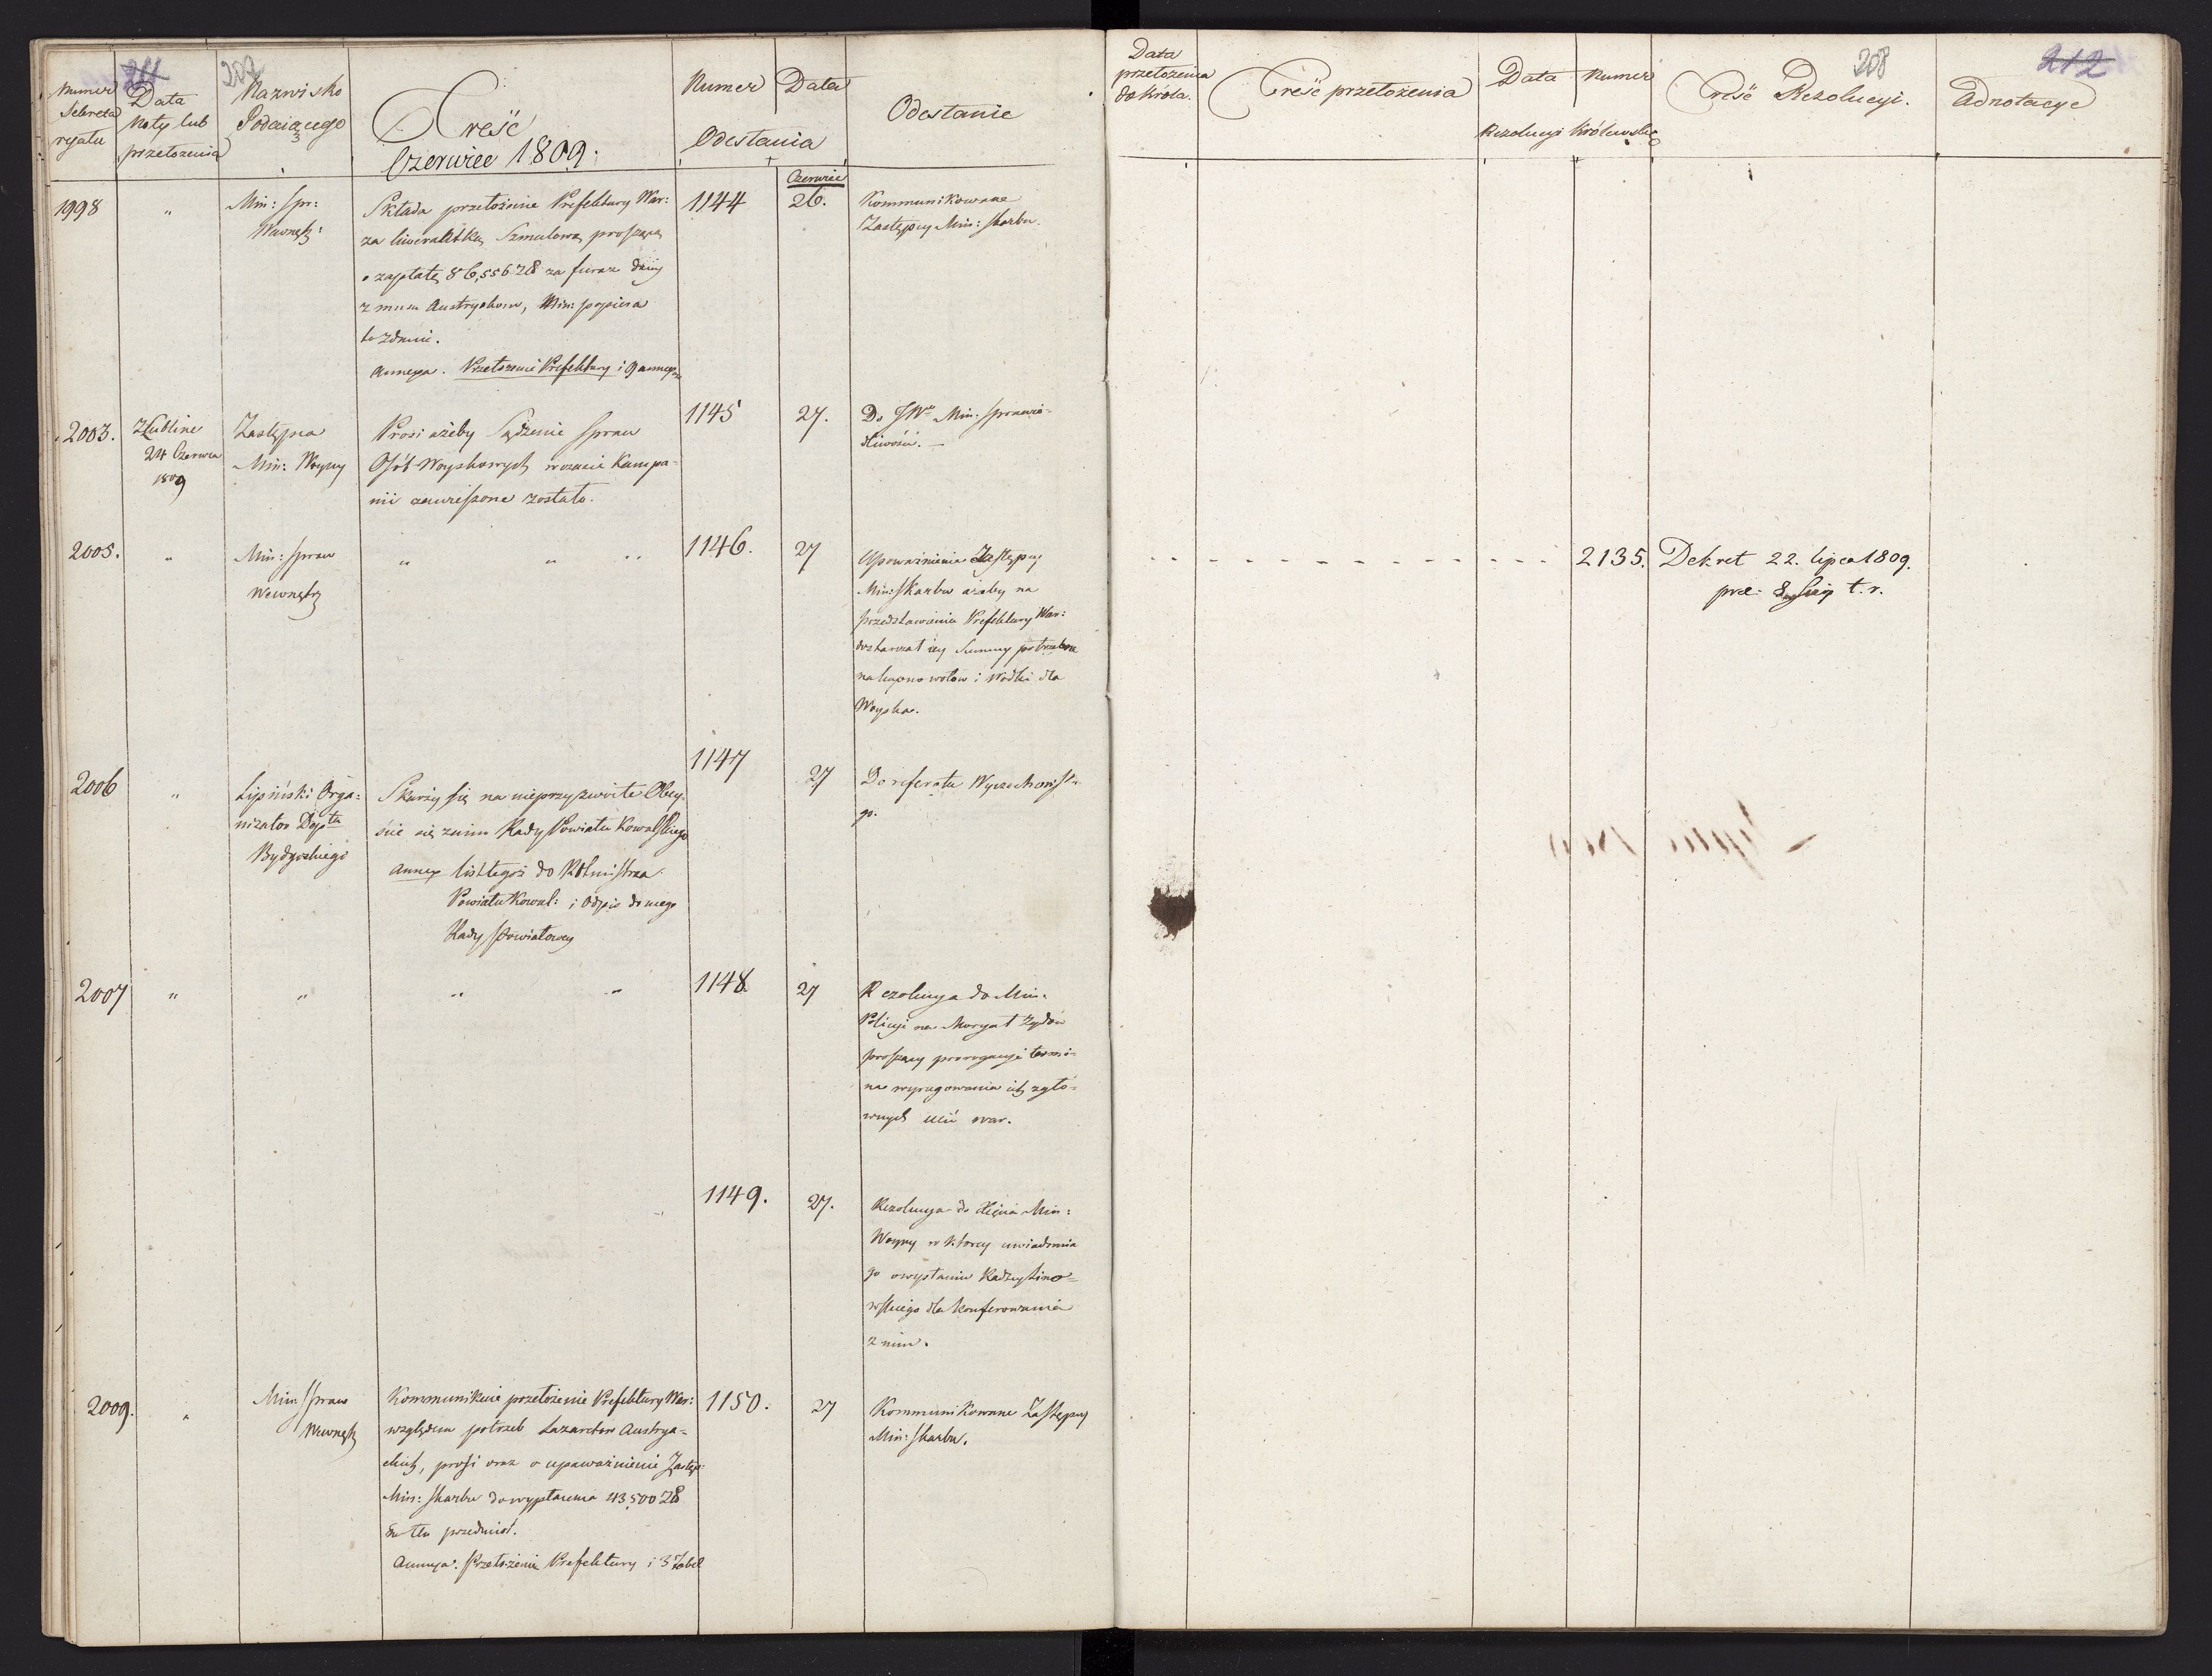 211
207
Numer
Sekreta
ryatu
Data
Noty lub
przełożenia
Nazwisko
Podaiącego
Treść
Czerwiec 1809.
Numer
Data
Odesłania
Odesłanie
1998
"
Min: Spr:
Wewnętr:
Składa przełożenie Prefektury War:
za liwerantką Szmulową proszącą
o zapłatę 86,556 zł za furaż dany
z musu Austryakom, Min: popiera
to żądanie.
Annexa. Przełożenie Prefektury i 9 annexów
1144
Czerwiec
26.
Kommunikowane
Zastępcy Min: Skarbu.
2003.
Z Lublina
24 Czerwca
1809
Zastępca
Min: Woyny
Prosi ażeby Sądzenie Spraw
Osób Woyskowych w czasie Kampa=
nii zawieszone zostało.
1145
27.
Do JWo Min: Sprawie=
dliwości. —
2005.
"
Min: Spraw
Wewnętrz
" " "
1146.
27
Upoważnienie Zastępcy
Min: Skarbu ażeby na
przedstawienia Prefektury War:
dostarczał iey Summy potrzebne
na kupno wołów i Wódki dla
Woyska.
2006
"
Lipiński Orga=
nizator Depttu
Bydgoskiego
Skarży się na nieprzyzwoite Obey=
ście się z nim Rady Powiatu Kowalskiego
Annex list tegoż do Rotmistrza
Powiatu Kowal: i Odpis do niego
Rady Powiatowey
1147
27
Do referatu Wyczechowskie
go.
2007
" " " "
1148.
27
Rezolucya do Min.
Policyi na Memoryał Żydów
proszący prorogacyi termi=
na wyrugowania ich z głó=
wnych ulic War.
1149.
27.
Rezolucya do Xięcia Min:
Woyny w którey uwiadomia
go o wysłaniu Radzy
wskiego dla konferowania
z nim.
2009.
"
Min Spraw
Wewnętr
Kommunikuie przełożenie Prefektury War:
względem potrzeb Lazaretów Austrya=
ckich, prosi oraz o upoważnienie Zastęp:
Min: Skarbu do wypłacenia 43,500 zł
na ten przedmiot.
Annexa: Przełożenie Prefektury i 3 Tabel
1150.
27
Kommunikowane Zastępcy
Min: Skarbu.
Data
przełożenia
do Króla.
Treść przełożenia
Data
Numer
Rezolucyi Królewskiej
208
Treść Rezolucyi.
212
Adnotacye
2135.
Dekret 22. lipca 1809.
t. r.